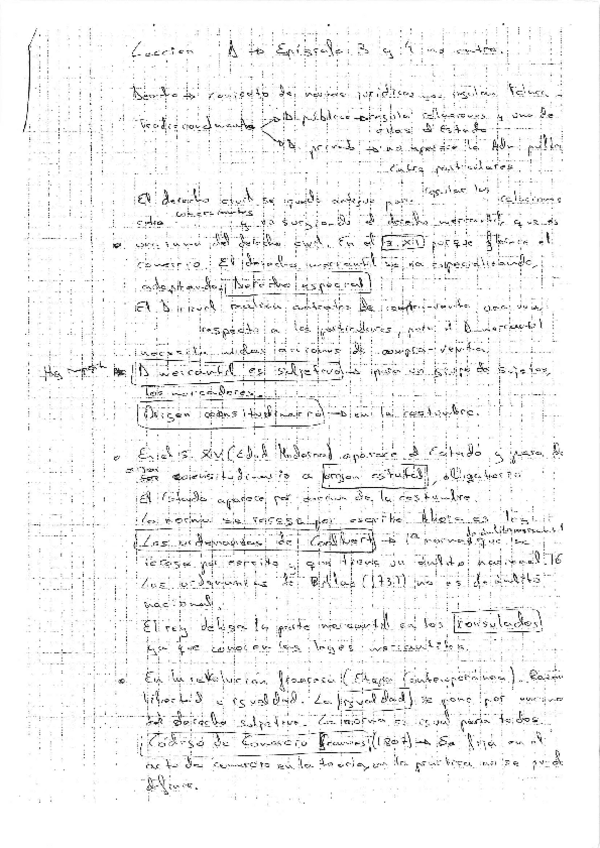 Leccion 1 to Epigrafe 3 y 4 no entra.
Derecho conjunto de normas jurídicas que regulan
Tradicionalmente D. público regula relaciones y uno de
ellos el Estado
D. privado no aparece la Adm. públi
entre particulares.
El derecho civil se quedó antiguo para regular las relaciones
entre comerciantes y va surgiendo el derecho mercantil que es
una rama del derecho civil. En el S. XII porque florece el
comercio. El derecho mercantil se va especializando,
adaptando, Derecho especial
El D civil regulan contratos de compra-venta una vez
respecto a los particulares, pero el D mercantil
necesita muchas acciones de compra-venta.
D mercantil es subjetivo para un grupo de sujetos,
los mercaderes.
Origen consuetudinario en la costumbre.
En el S. XV (Edad Moderna) aparece el Estado y pasa de
ser consuetudinario a origen estatal, obligatorio
El Estado aparece por encima de la costumbre.
La norma se recoge por escrito. Ahora es ley
Las ordenanzas de Colbert 1ª norma que se
recoge por escrito y que tiene un ámbito nacional. 16
Las ordenanzas de Bilbao (1737) no es de ámbito
nacional.
El rey delega la parte mercantil en los consulados
ya que conocen las leyes mercantiles.
En la revolución francesa (Etapa Contemporanea).
libertad e igualdad. La igualdad se pone por encima
del derecho subjetivo. La norma es igual para todos
Código de Comercio frances (1807) Se fija en el
acto de comercio en la teoria, en la practica no se puede
definir.